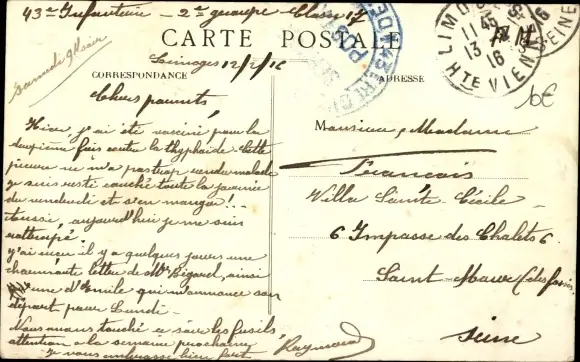 43me Infanterie - 2e groupe - Classe 17
CARTE POSTALE
CORRESPONDANCE
ADRESSE
LIMOGES
11 45
13 - 2
16
Hte VIENNE
SEINE
samedi
Limoges 12/2/16
Chers parents,
Hier, j'ai été vacciné pour la
deuxième fois contre la thyphoïde. Cette
piqure ne m'a pas trop rendu malade
je suis resté couché toute la journée
du vendredi et s'en manger!..
aussi, aujourd'hui je me suis
rattrapé.
J'ai reçu il y a quelques jours une
charmante lettre de Mr Bigarel, ainsi
qu'une d'Emile qui m'annonce son
départ pour Lundi.
Nous avons touché ce soir les fusils
attention a la semaine prochaine
Je vous embrasse bien fort
Raymond
Monsieur, Madame
Francois
Villa Sainte Cécile
6 Impasse des Chalets 6
Saint-Maur (des fossés)
Seine